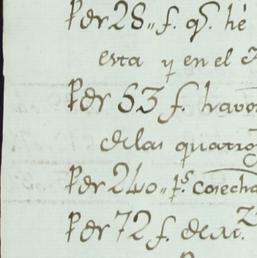 Per 28,, f. q.^s hé
esta y en el
Per 53 f. havo
de las quatro
Per 240,, p.^s cosecha
Per 72 f. de